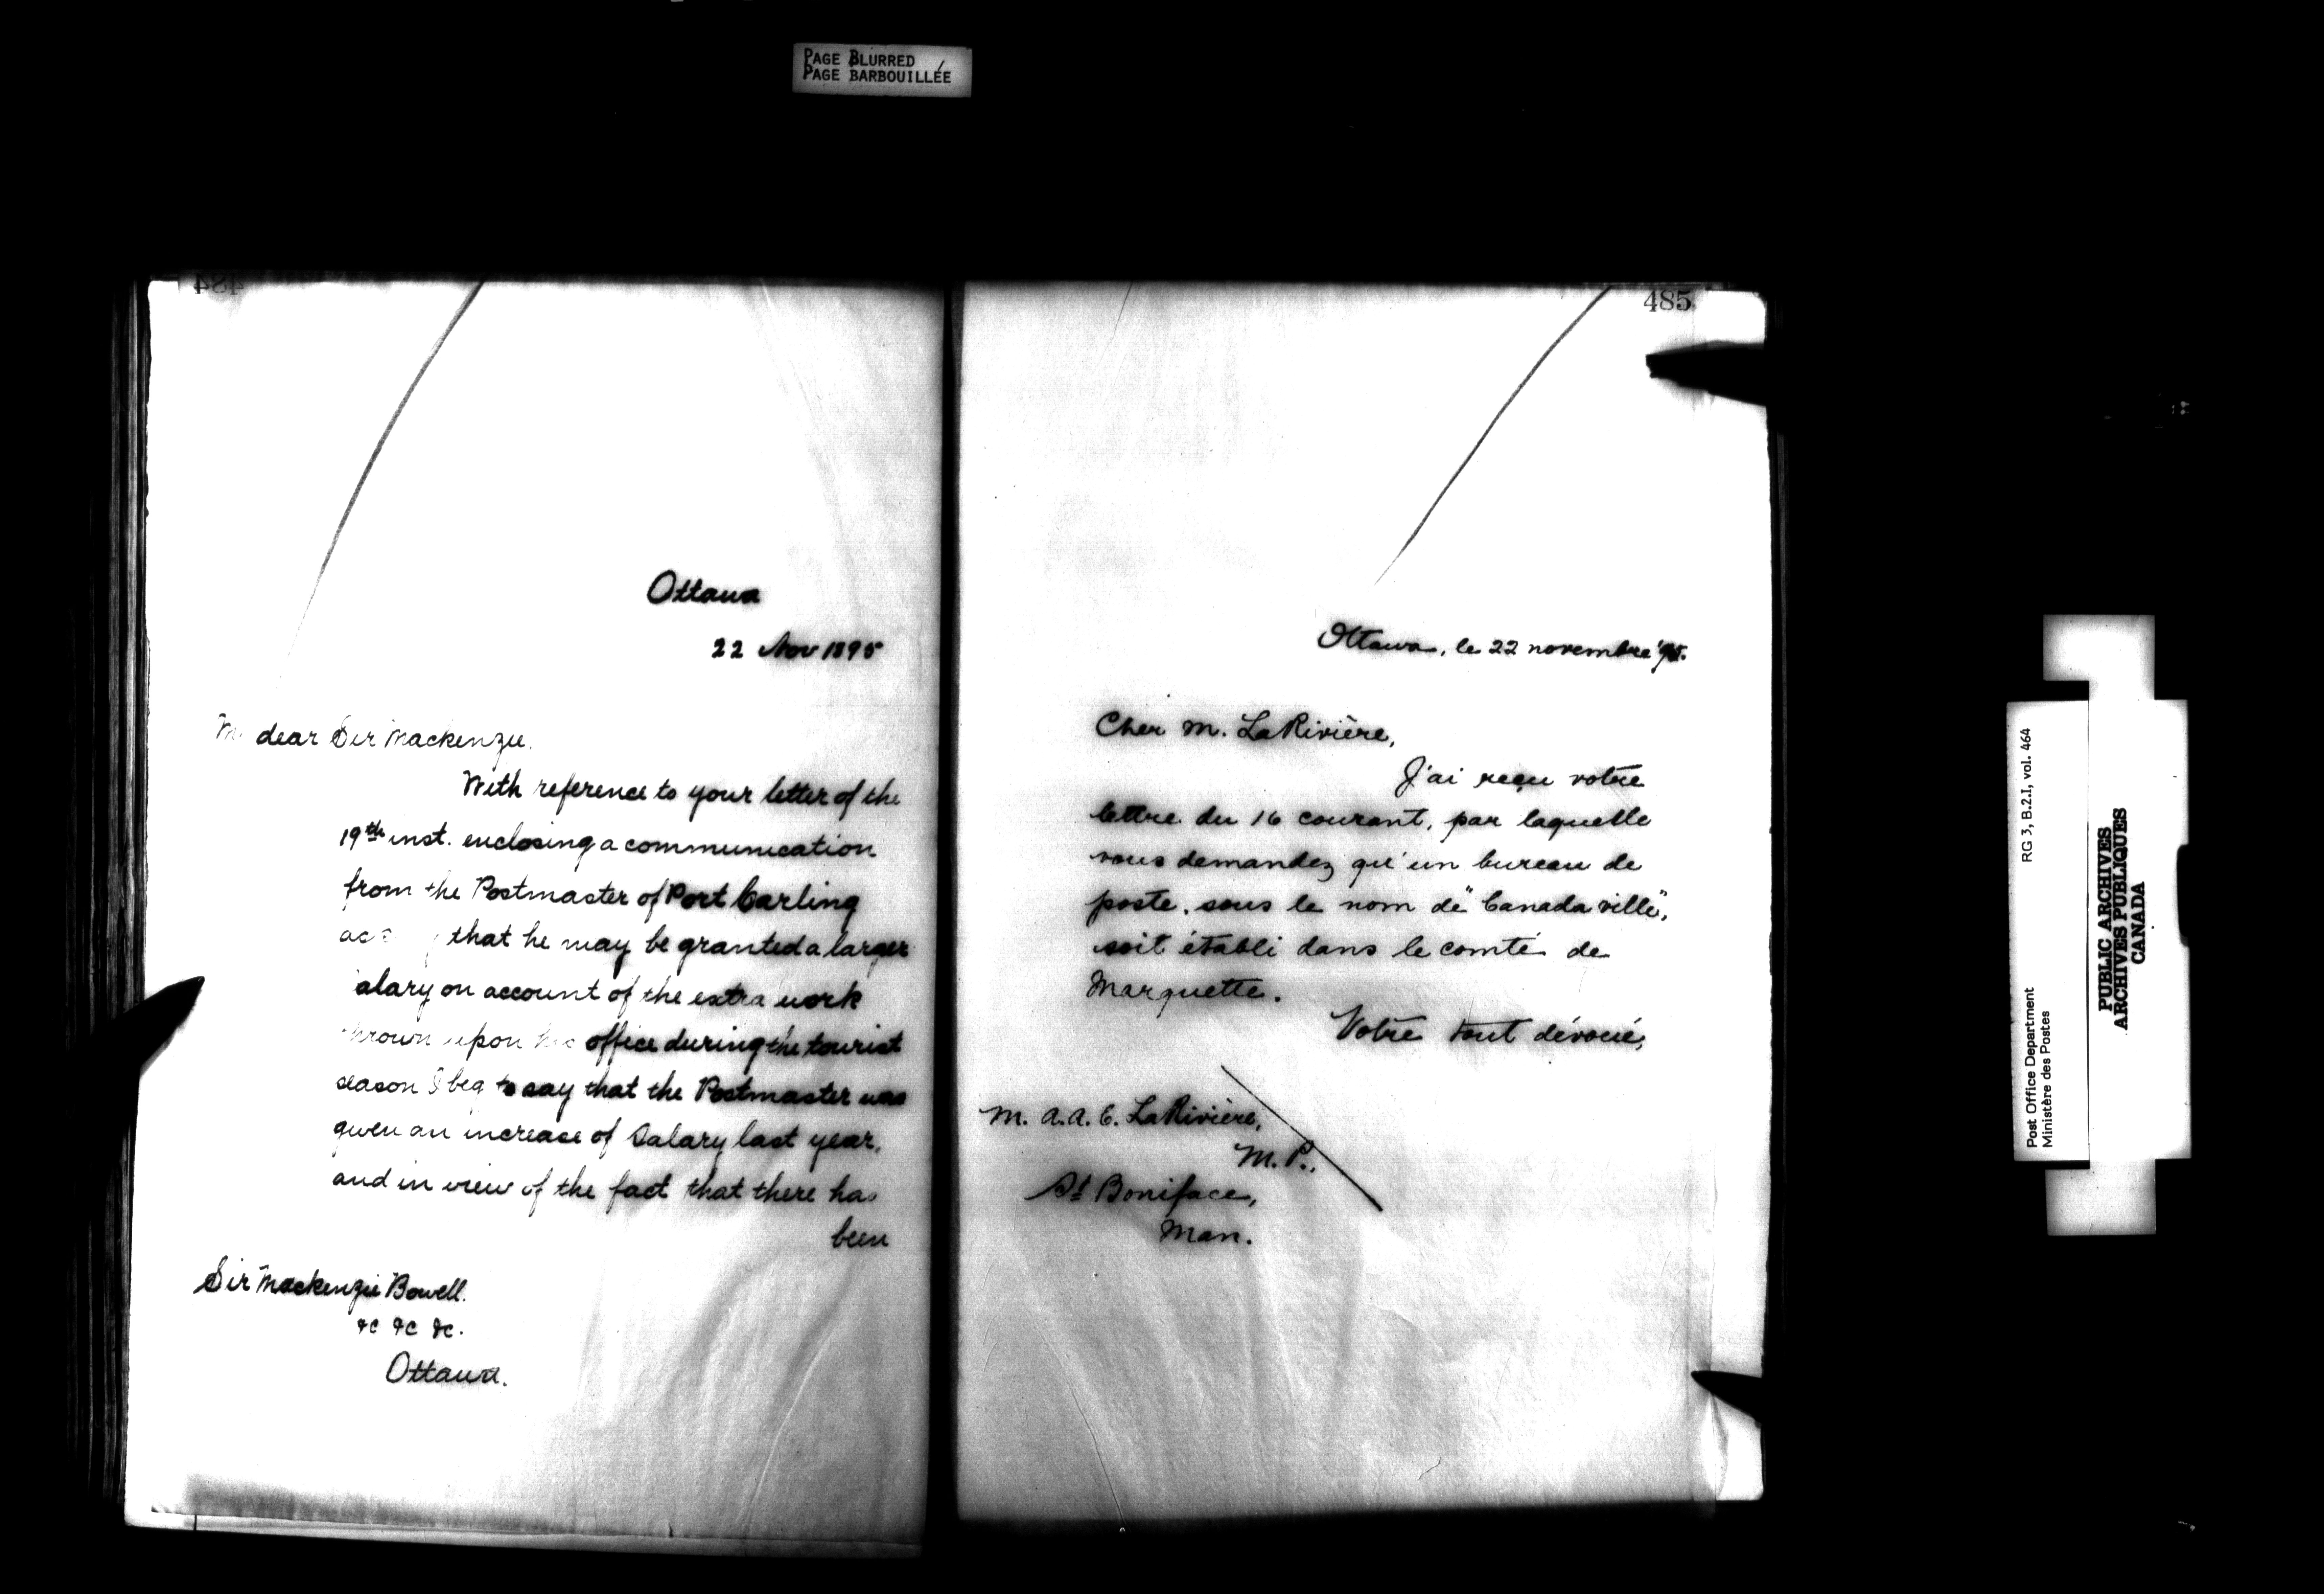 PAGE BLURRED
PAGE BARBOUILLÉE
484
Ottawa
22 Nov 1895
dear Sir Mackenzie.
With reference to your letter of the
19th inst. enclosing a communication
from the Postmaster of Port Carling
that he may be granted a larger
alary on account of the extra work
hrown upon his office during the tourist
season I beg to say that the Postmaster was
given an increase of Salary last year,
and in view of the fact that there has
been
Sir Mackenzie Bowell.
&c &c &c.
Ottawa.
485
Ottawa, le 22 novembre '95.
Cher M. LaRivière,
J'ai reçu votre
lettre du 16 courant, par laquelle
vous demandez qu'un bureau de
poste, sous le nom de "Canadaville",
soit établi dans le comté de
Marquette.
Votre tout dévoué,
M. A. A. C. LaRivière,
M. P.,
St Boniface,
Man.
Post Office Department
Ministère des Postes
RG 3, B.2.I, vol. 464
PUBLIC ARCHIVES
ARCHIVES PUBLIQUES
CANADA